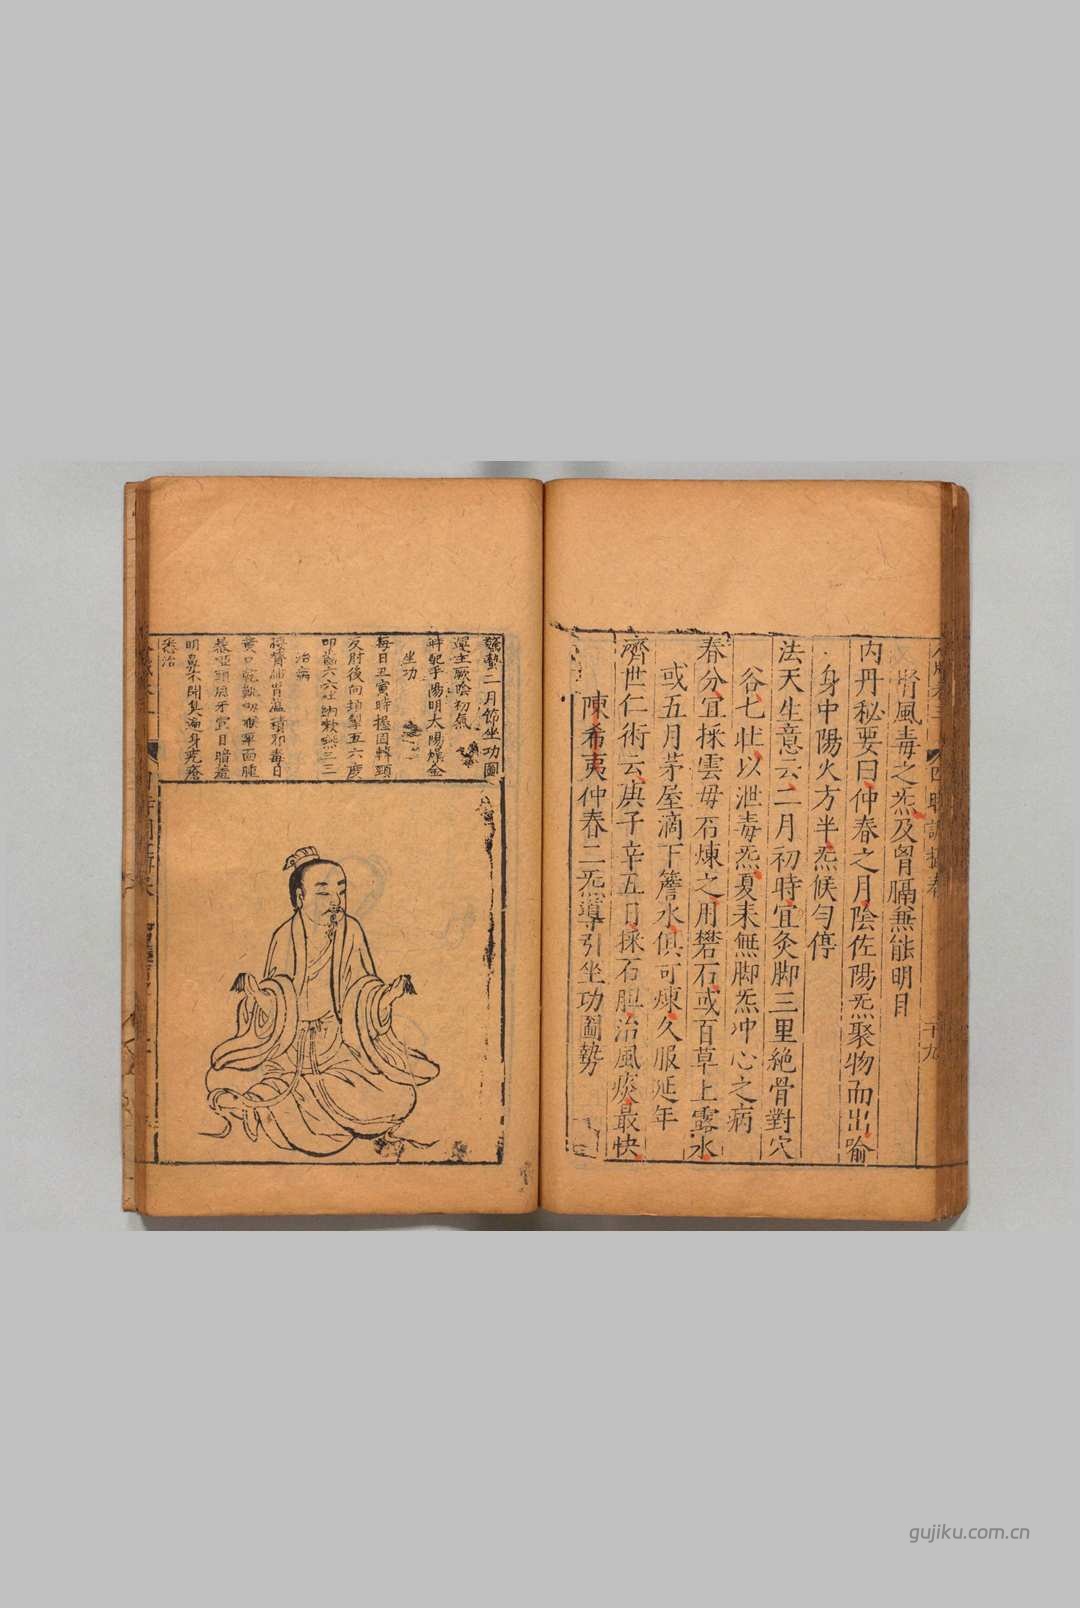 腎風毒之炁及胷膈兼能明目
内丹秘要曰仲春之月陰佐陽炁聚物而出喻
身中陽火方半炁候勻停
法天生意云二月初時宜灸脚三里絶骨對穴
各七壯以泄毒炁夏來無脚炁冲心之病
春分宜採雲毋石煉之用礬石或百草上露水
或五月茅屋滴下簷水俱可煉久服延年
濟世仁術云庚子辛丑日採石膽治風痰最快
陳希夷仲春二炁導引坐功圖勢
驚蟄二月節坐功圖
運主厥陰初氣
時配手陽明大陽燥金
坐功
每日丑寅時握固轉頸
反肘後向頓掣五六度
叩齒六六吐納漱嚥三三
治病
腰脊肺胃蘊積邪毒目
黃口乾鼽衂喉痺面腫
暴啞頭風牙宣目暗羞
明鼻不聞臭遍身疙瘡
悉治
gujiku.com.cn